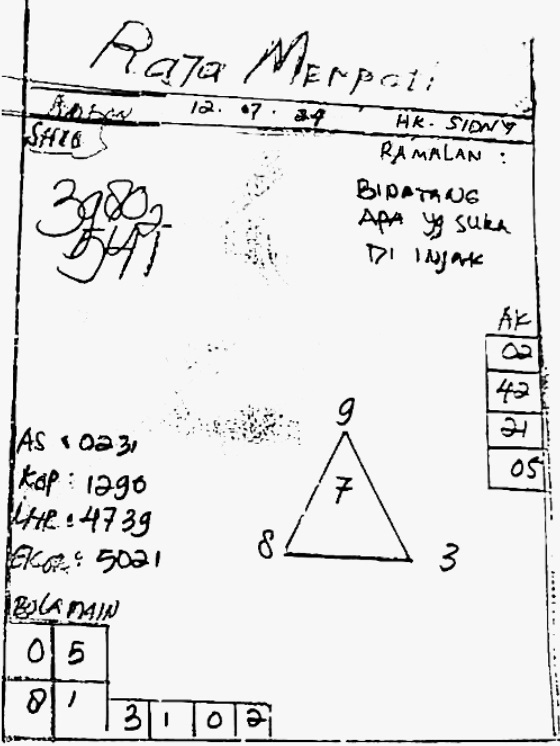 Raja Merpati
12. 07. 24 HK. SIDNY
SHIO
RAMALAN :
BINATANG
APA yg SUKA
DI INJAK
AK
02
42
21
05
9
7
8 3
AS : 0231
KOP : 1290
4739
EKOR : 5021
BOLA MAIN
0 5
8 1
3 1 0 2